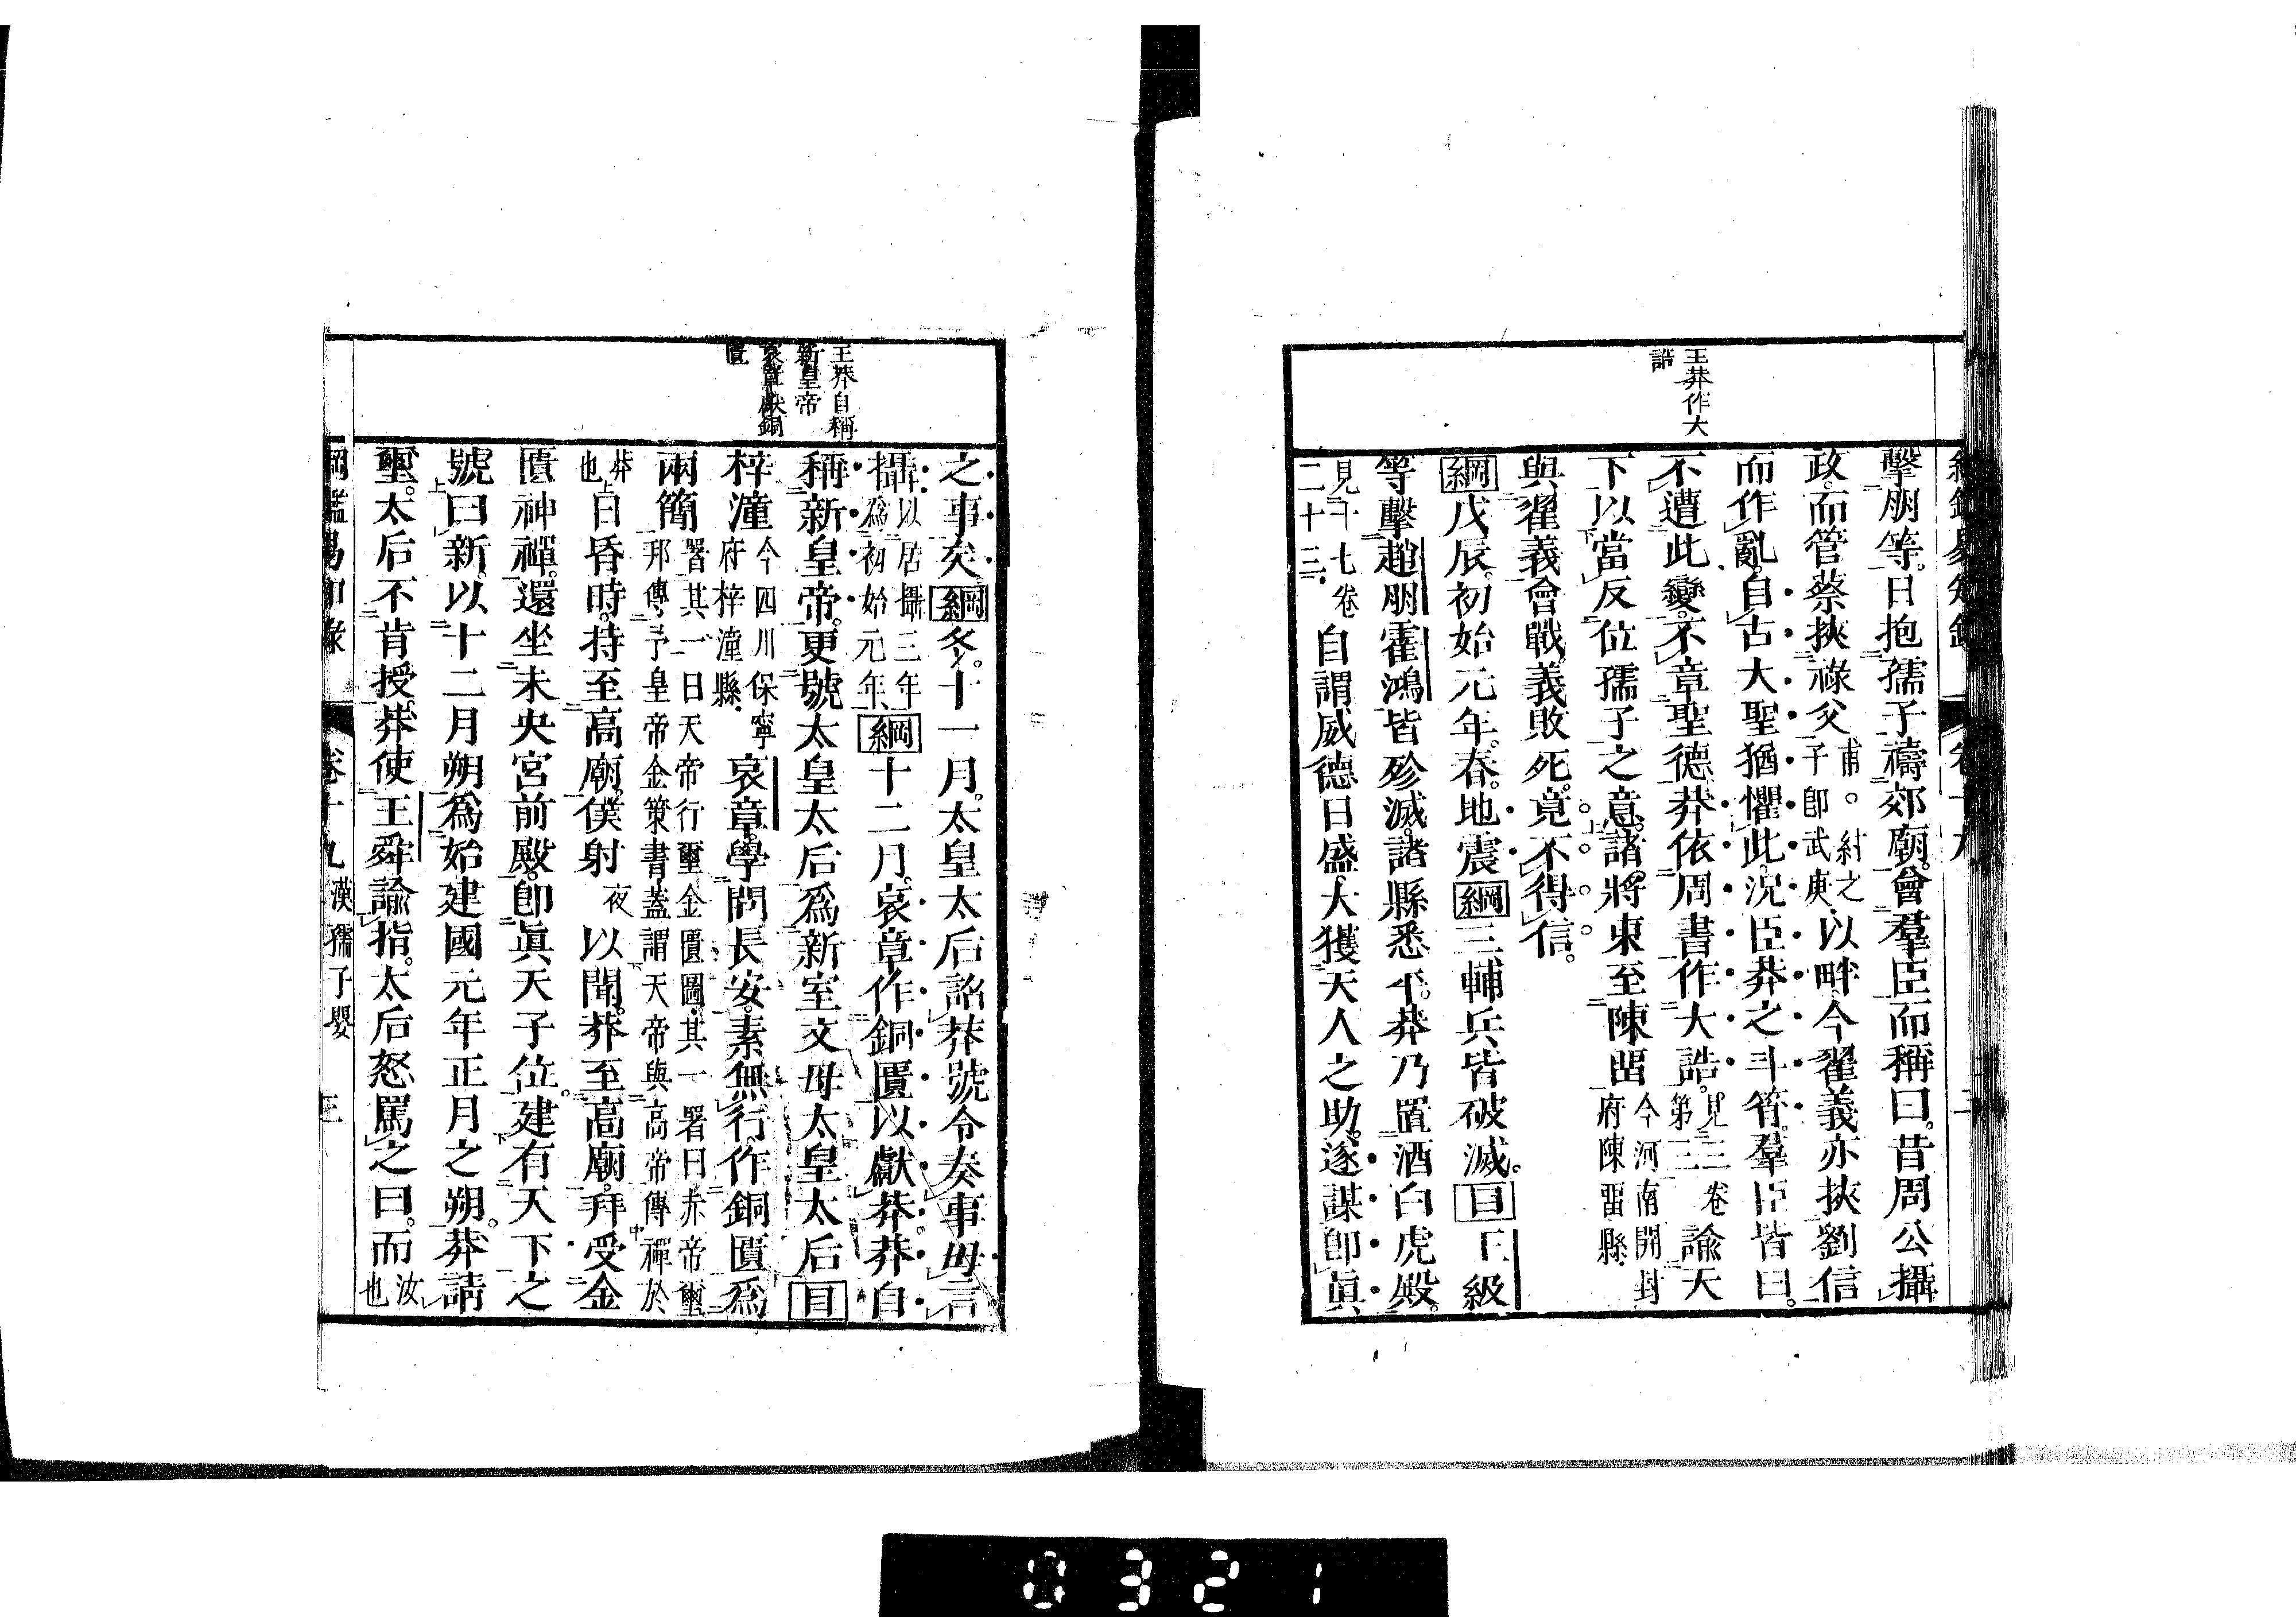 王莽作大
誥
擊朋等。日抱孺子禱郊廟。會羣臣而稱曰。昔周公攝
政。而管蔡挾祿父甫。紂之子卽武庚以畔。今翟義亦挾劉信
而作亂。自古大聖猶懼此。況臣莽之斗筲。羣臣皆曰。
不遭此變。不章聖德。莽依周書作大誥。見三卷第三諭天
下以當反位孺子之意。諸將東至陳留今河南開封府陳留縣
與翟義會戰。義敗死。竟不得信。
綱戊辰。初始元年。春。地震綱三輔兵皆破滅。目王級
等擊趙朋霍鴻皆殄滅。諸縣悉平。莽乃置酒白虎殿。
見十七卷二十三自謂威德日盛。大獲天人之助。遂謀卽眞
王莽自稱
新皇帝
哀章獻銅
匱
之事矣。綱冬。十一月。太皇太后詔莽號令奏事毋言
攝以居攝三年爲初始元年綱十二月。哀章作銅匱以獻莽。莽自
稱新皇帝。更號太皇太后爲新室文母太皇太后目
梓潼今四川保寧府梓潼縣哀章。學問長安。素無行。作銅匱爲
兩簡署其一曰天帝行璽金匱圖其一署曰赤帝璽邦傳予皇帝金策書蓋謂天帝與高帝傳禪於
莽也日昏時。持至高廟。僕射夜以聞。莽至高廟。拜受金
匱神禪。還坐未央宮前殿。卽眞天子位。建有天下之
號曰新。以十二月朔爲始建國元年正月之朔。莽請
璽。太后不肯授。莽使王舜諭指。太后怒罵之曰。而汝也
綱鑑易知錄 卷十九 漢孺子嬰 三
0321